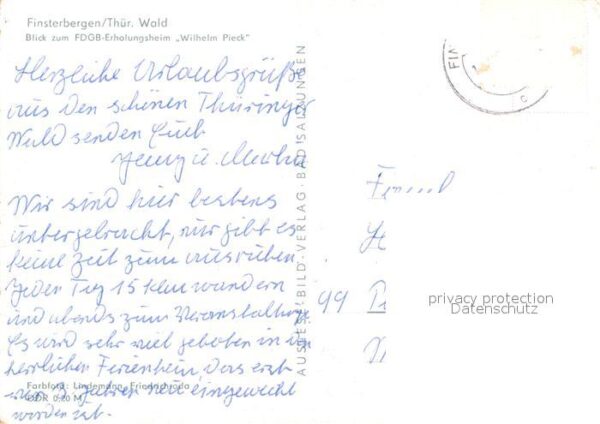 Finsterbergen/Thür. Wald
Blick zum FDGB-Erholungsheim „Wilhelm Pieck"
Herzliche Urlaubsgrüße
aus den schönen Thüringer
Wald senden Euch
u.
Wir sind hier bestens
untergebracht, nur gibt es
keine Zeit zum ausruhen.
Jeden Tag 15 klm wandern
und abends zum Veranstaltung
Es wird sehr viel geboten in
herrlichen Ferienheim, das erst
2 Jahren neu eingeweiht
worden ist.
Farbfoto: Lindemann, Friedrichroda
DDR 0,20 M
AUSLESE-BILD-VERLAG·BAD SALZUNGEN
FIN
99
privacy protection
Datenschutz